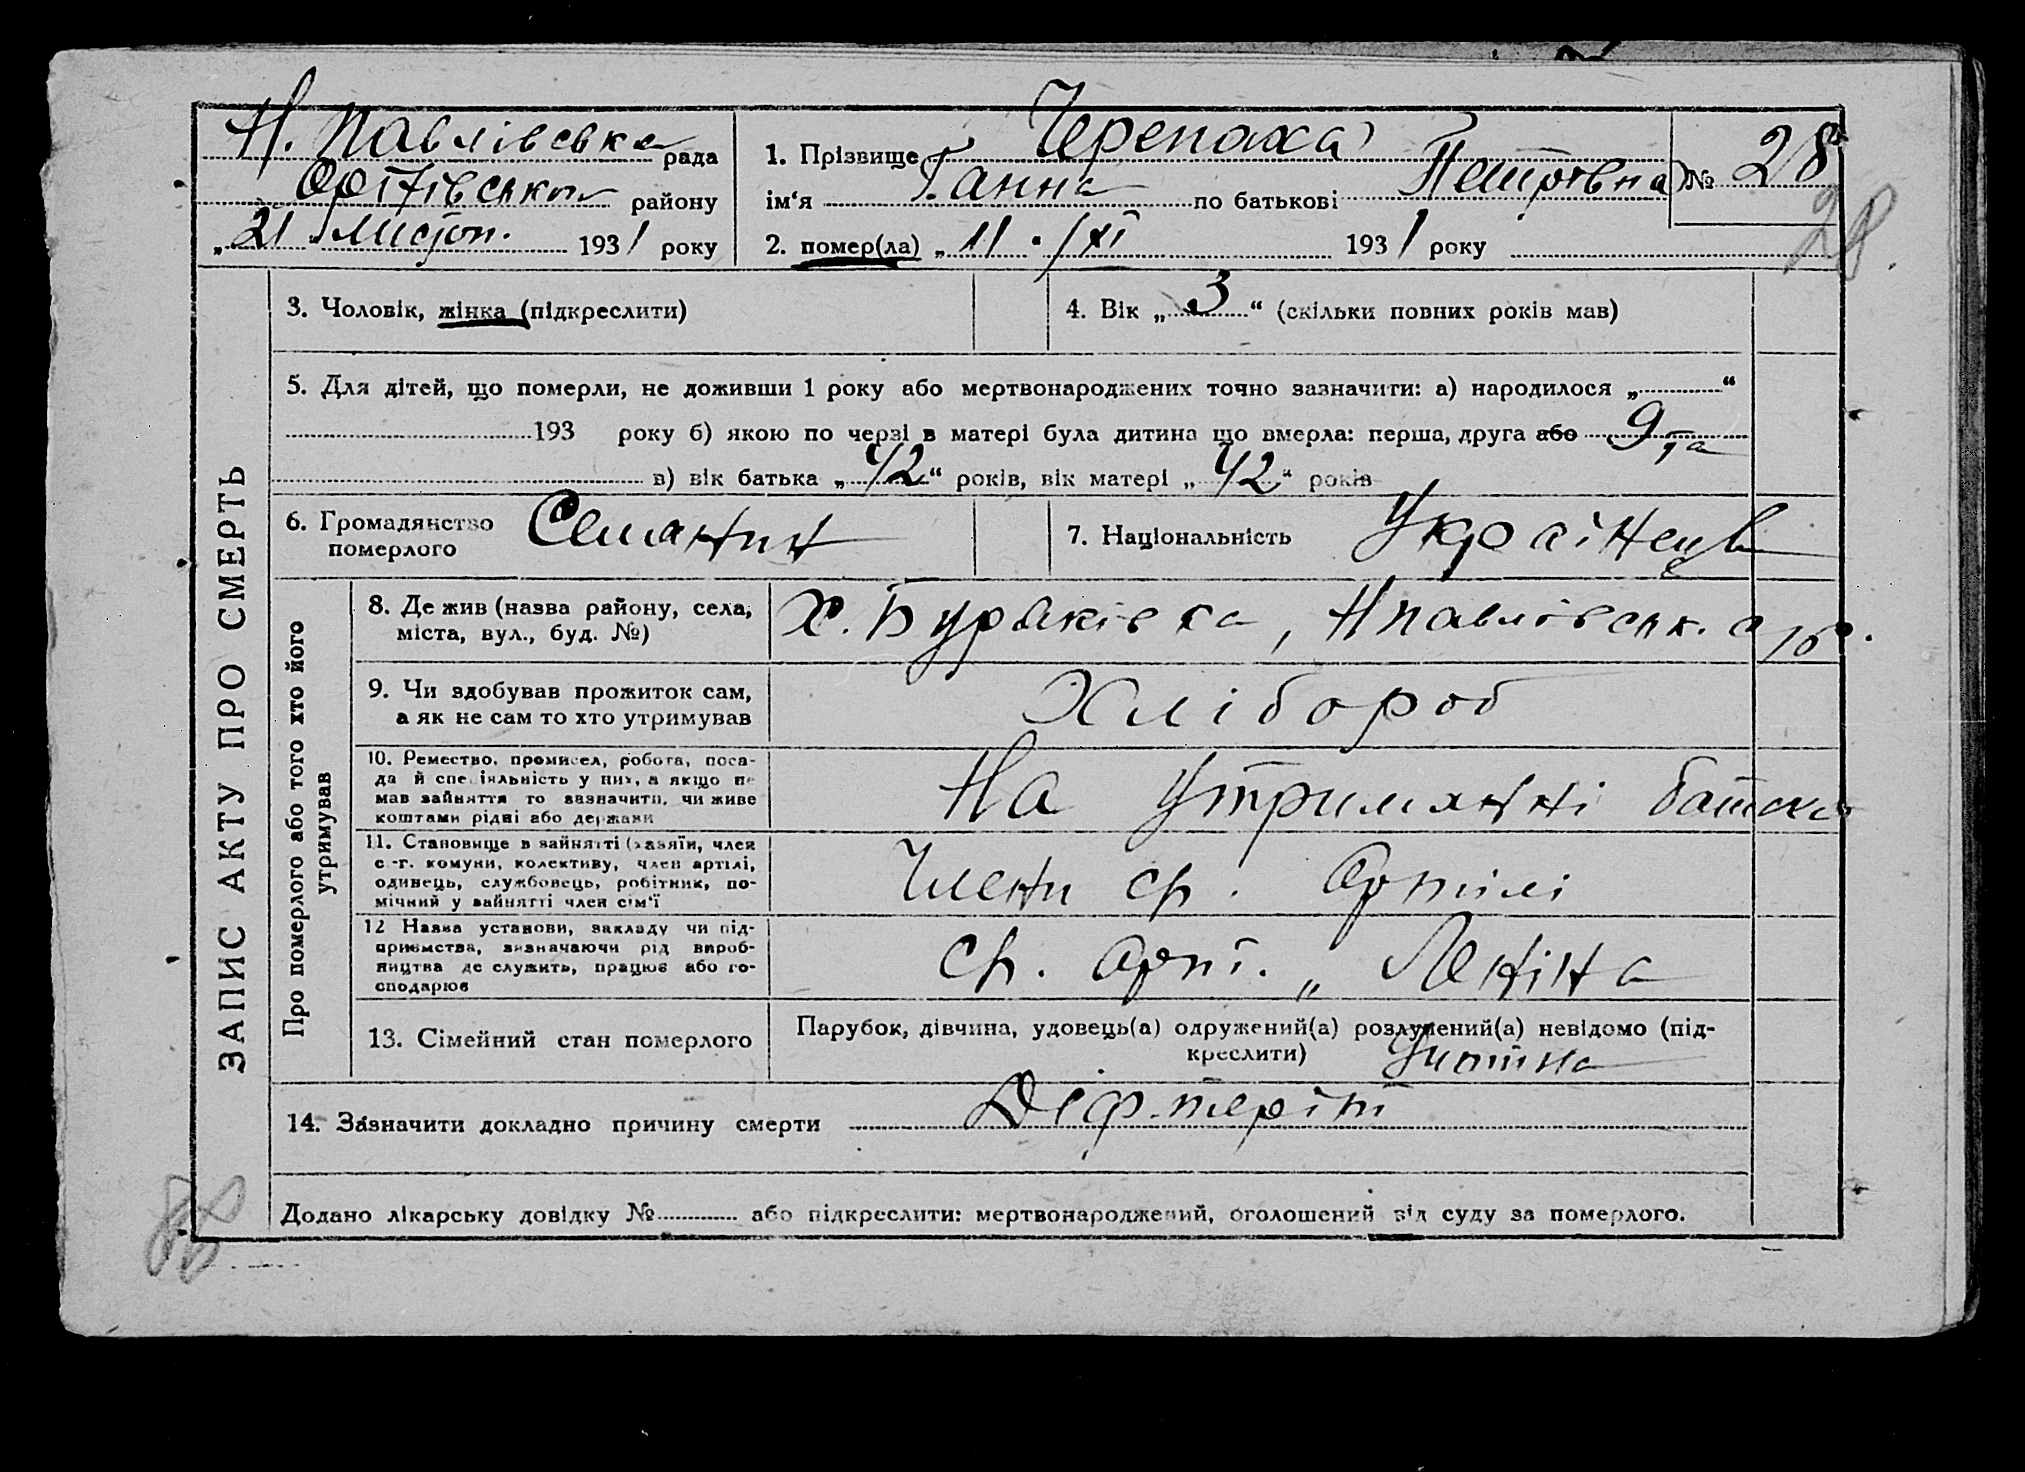 Н. Павлівська рада
району
„21“ Листоп. 1931 року
1. Прізвище Черепаха
ім‘я Ганна по батькові Петрівна
№ 28
28.
2. помер(ла) „11“ XI 1931 року
ЗАПИС АКТУ ПРО СМЕРТЬ
3. Чоловік, жінка (підкреслити)
4. Вік „3“ (скільки повних років мав)
5. Для дітей, що померли, не доживши 1 року або мертвонароджених точно зазначити: а) народилося „ “
193 року б) якою по черзі в матері була дитина що вмерла: перша, друга або 9та
в) вік батька „42“ років, вік матері „42“ років
6. Громадянство
померлого
Селянин
7. Національність Українець
Про померлого або того хто його
утримував
8. Де жив (назва району, села,
міста, вул., буд. №)
Х. Буряківка, Нпавлівськ.
9. Чи здобував прожиток сам,
а як не сам то хто утримував
Хлібороб
10. Ремество, промисел, робота, поса-
да й спеціяльність у них, а якщо не
мав зайняття то зазначити, чи живе
коштами рідні або держави
На утриманні батьків
11. Становище в зайнятті (хазяїн, член
с.-г. комуни, колективу, член артілі,
одинець, службовець, робітник, по-
мічний у зайнятті член сім‘ї
Члени сг. Артілі
12 Назва установи, закладу чи під-
приємства, зазначаючи рід вироб-
ництва де служить, працює або го-
сподарює
сг. арт. „Леніна
13. Сімейний стан померлого
Парубок, дівчина, удовець(а) одружений(а) розлучений(а) невідомо (під-
креслити)
14. Зазначити докладно причину смерти Діфтеріт
Додано лікарську довідку № або підкреслити: мертвонароджений, оголошений від суду за померлого.